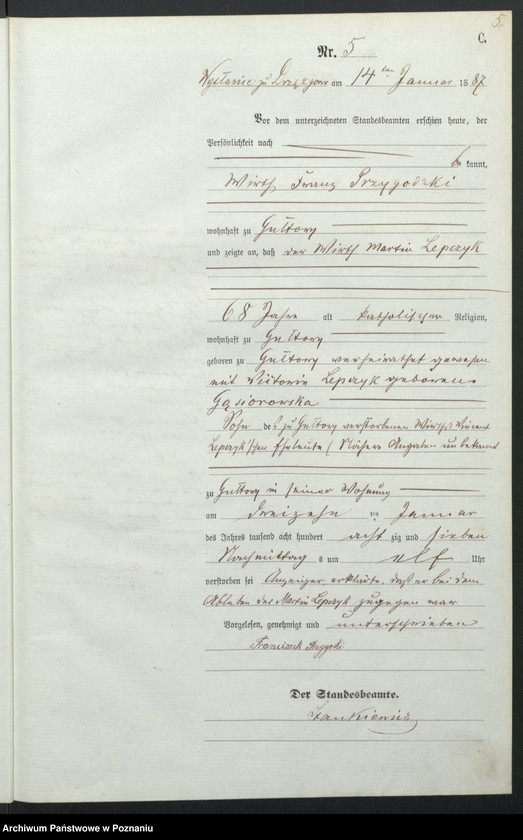 5.
C.
Nr. 5
zu am 14 ten Januar 1887
Vor dem unterzeichneten Standesbeamten erschien heute, der
Persönlichkeit nach
bekannt,
Wirth Franz Przygodzki
wohnhaft zu Gultowy
und zeigte an, daß der Wirth Martin Lepczyk
68 Jahre alt katholischer Religion,
wohnhaft zu Gultowy
geboren zu Gultowy verheirathet gewesen
mit Victoria Lepczyk geborene
Gąsiorowska
Sohn des zu Gultowy verstorbenen Wirths Vincent
Lepczyk'schen Eheleute (Nähere Angaben unbekannt
zu Gultowy in seiner Wohnung
am dreizehn ten Januar
des Jahres tausend acht hundert acht zig und sieben
Nachmittag s um elf Uhr
verstorben sei Anzeiger erklärte, daß er bei dem
Ableben des Martin Lepczyk zugegen war
Vorgelesen, genehmigt und unterschrieben
Der Standesbeamte.
Stankiewicz
Archiwum Państwowe w Poznaniu